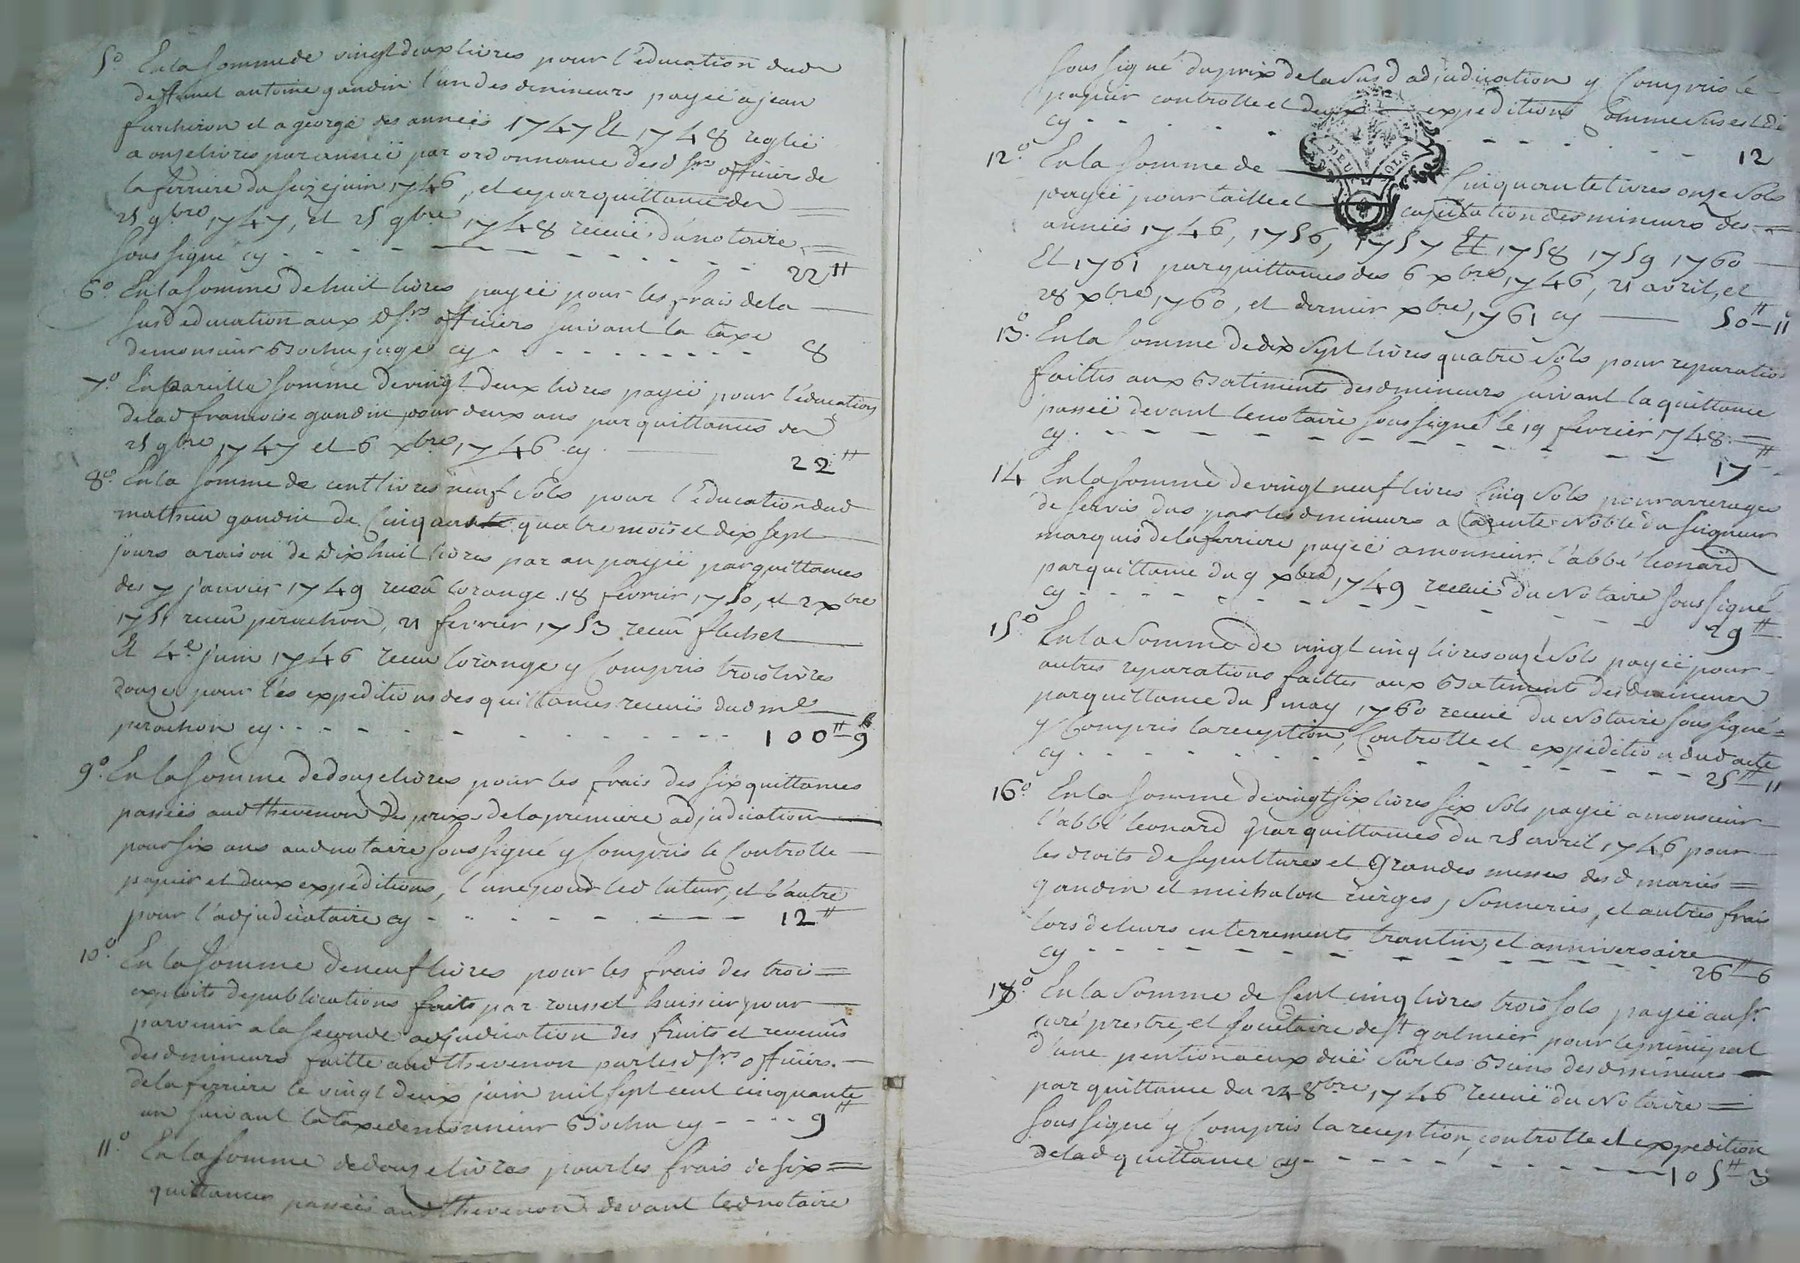 5° En la somme de vingt deux livres pour l'education dud
deffunt antoine gandin l'un des d mineurs payeë a jean
furchiron et a george des anneës 1747 Et 1748 regleë
a onze livres par anneë par ordonnance desd srs officiers de
la ferriere du seize juin 1746, et cy par quittance de
25 9bre 1747, et 25 9bre 1748 receue du notaire
sous signé cy 22 ᵗᵗ
6° En la somme de huit livres payeë pour les frais de la
susd education aux d srs officiers suivant la taxe
de monsieur Bochu juge cy 8
7° En pareille somme de vingt deux livres payeë pour l'education
de lad francoise gandin pour deux ans par quittances de
25 9bre 1747 et 6 xbre 1746 cy 22 ᵗᵗ
8° En la somme de cent livres neuf sols pour l'education dud
mathieu gandin de Cinq ans quatre mois et dix sept
jours a raison de dix huit livres par an payeë par quittances
des 7 janvier 1749 receu lorange 18 fevrier 1750, et 2 xbre
1751 receu perachon, 21 fevrier 1753 receu fluchet
Et 4e juin 1746 receu lorange y Compris trois livres
douze pour les expeditions des quittances receuës dud me
perachon cy 100 ᵗᵗ 9 s
9° En la somme de douze livres pour les frais des six quittances
passeës aud thevenon du prix de la premiere adjudication
pour six ans aud notaire sous signé y Compris le Controlle
papier et deux expéditions, l'une pour led tuteur, et l'autre
pour l'adjudicataire cy 12 ᵗᵗ
10° En la somme de neuf livres pour les frais des trois
exploits de publications faits par rousset huissier pour
parvenir a la seconde adjudication des fruits et revenus
desd mineurs faitte aud thevenon par les d srs officiers
de la ferriere le vingt deux juin mil sept cent cinquante
un suivant la taxe de monsieur Bochu cy 9 ᵗᵗ
11° En la somme de douze livres pour les frais de six
quittances passeës aud thevenon devant led notaire
sous signé du prix de la susd adjudication y Compris le
papier controlle et deux expeditions Comme sus est dit
cy 12
DEUX SOLS
12° En la somme de Cinquante livres onze sols
payeë pour taille et capitation des mineurs des
anneës 1746, 1756, 1757 Et 1758 1759 1760
Et 1761 par quittances des 6 xbre 1746, 21 avril, et
28 xbre 1760, et dernier xbre 1761 cy 50 ᵗᵗ 11
13° En la somme de dix sept livres quatre sols pour reparations
faittes aux Batiments desd mineurs suivant la quittance
passeë devant le notaire sous signé le 19 fevrier 1748
cy 17 ᵗᵗ
14 En la somme de vingt neuf livres Cinq sols pour arrerages
de servis dus par les d mineurs a la rente Noble du seigneur
marquis de la ferriere payeë a monsieur l'abbé leonard
par quittance du 9 xbre 1749 receuë du Notaire sous signé
cy 29 ᵗᵗ
15° En la somme de vingt cinq livres onze sols payeë pour
autres reparations faittes aux Batiments desd mineurs
par quittance du 5 may 1760 receuë du Notaire sous signé
y Compris la reception, Controlle et expedition dud acte
cy 25 ᵗᵗ 11
16° En la somme de vingt six livres six sols payeë a monsieur
l'abbé leonard par quittances du 25 avril 1746 pour
les droits de sepultures et Grandes messes desd mariés
gandin et michalon cierges, sonneries, et autres frais
lors de leurs enterrements trantin, et anniversaire
cy 26 ᵗᵗ 6
17° En la somme de Cent cinq livres trois sols payeë au sr
curé prestre, et societaire de st galmier pour le principal
d'une pention a eux deüe sur les Biens desd mineurs
par quittance du 24 8bre 1746 receuë du Notaire
sous signé y Compris la reception, controlle et expedition
de lad quittance cy 105 ᵗᵗ 3